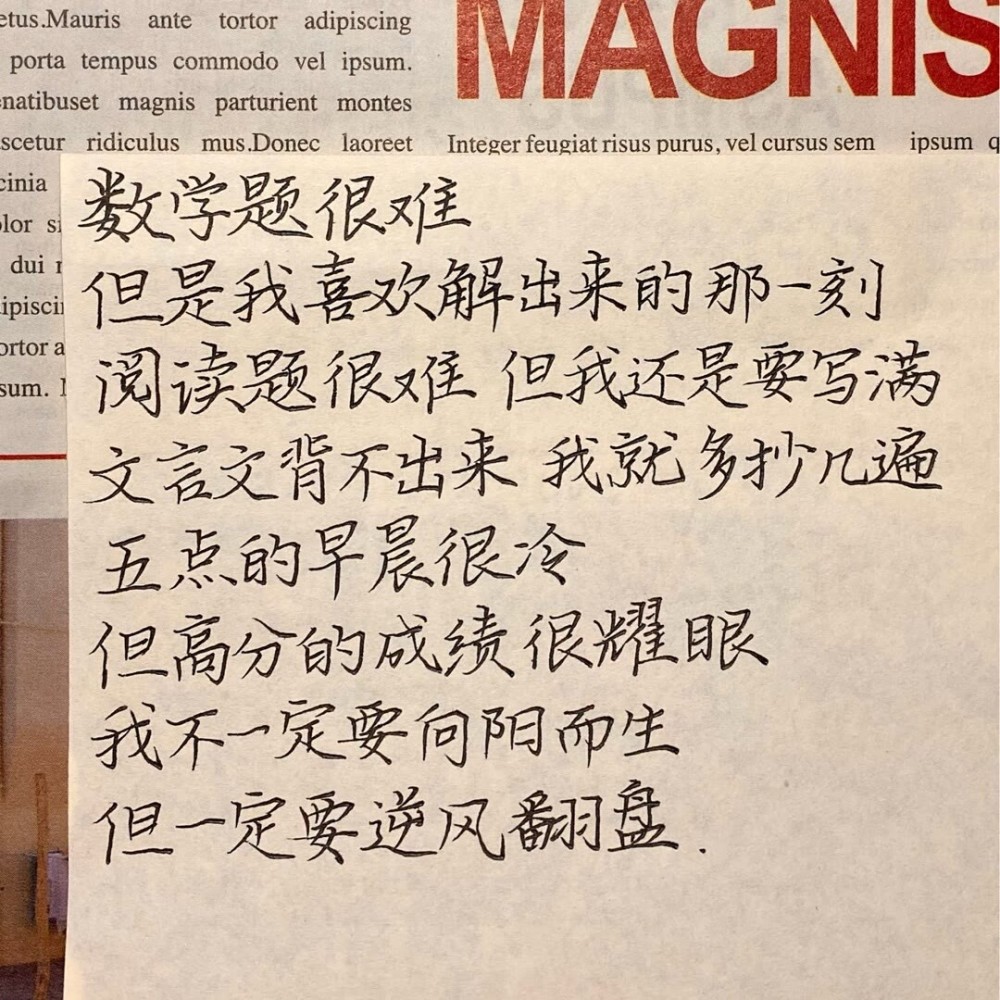 etus.Mauris ante tortor adipiscing
porta tempus commodo vel ipsum.
natibuset magnis parturient montes
scetur ridiculus mus.Donec laoreet
cinia
olor si
dui
ipiscin
ortor a
sum.
MAGNIS
Integer feugiat risus purus, vel cursus sem ipsum q
数学题很难
但是我喜欢解出来的那一刻
阅读题很难 但我还是要写满
文言文背不出来 我就多抄几遍
五点的早晨很冷
但高分的成绩很耀眼
我不一定要向阳而生
但一定要逆风翻盘.